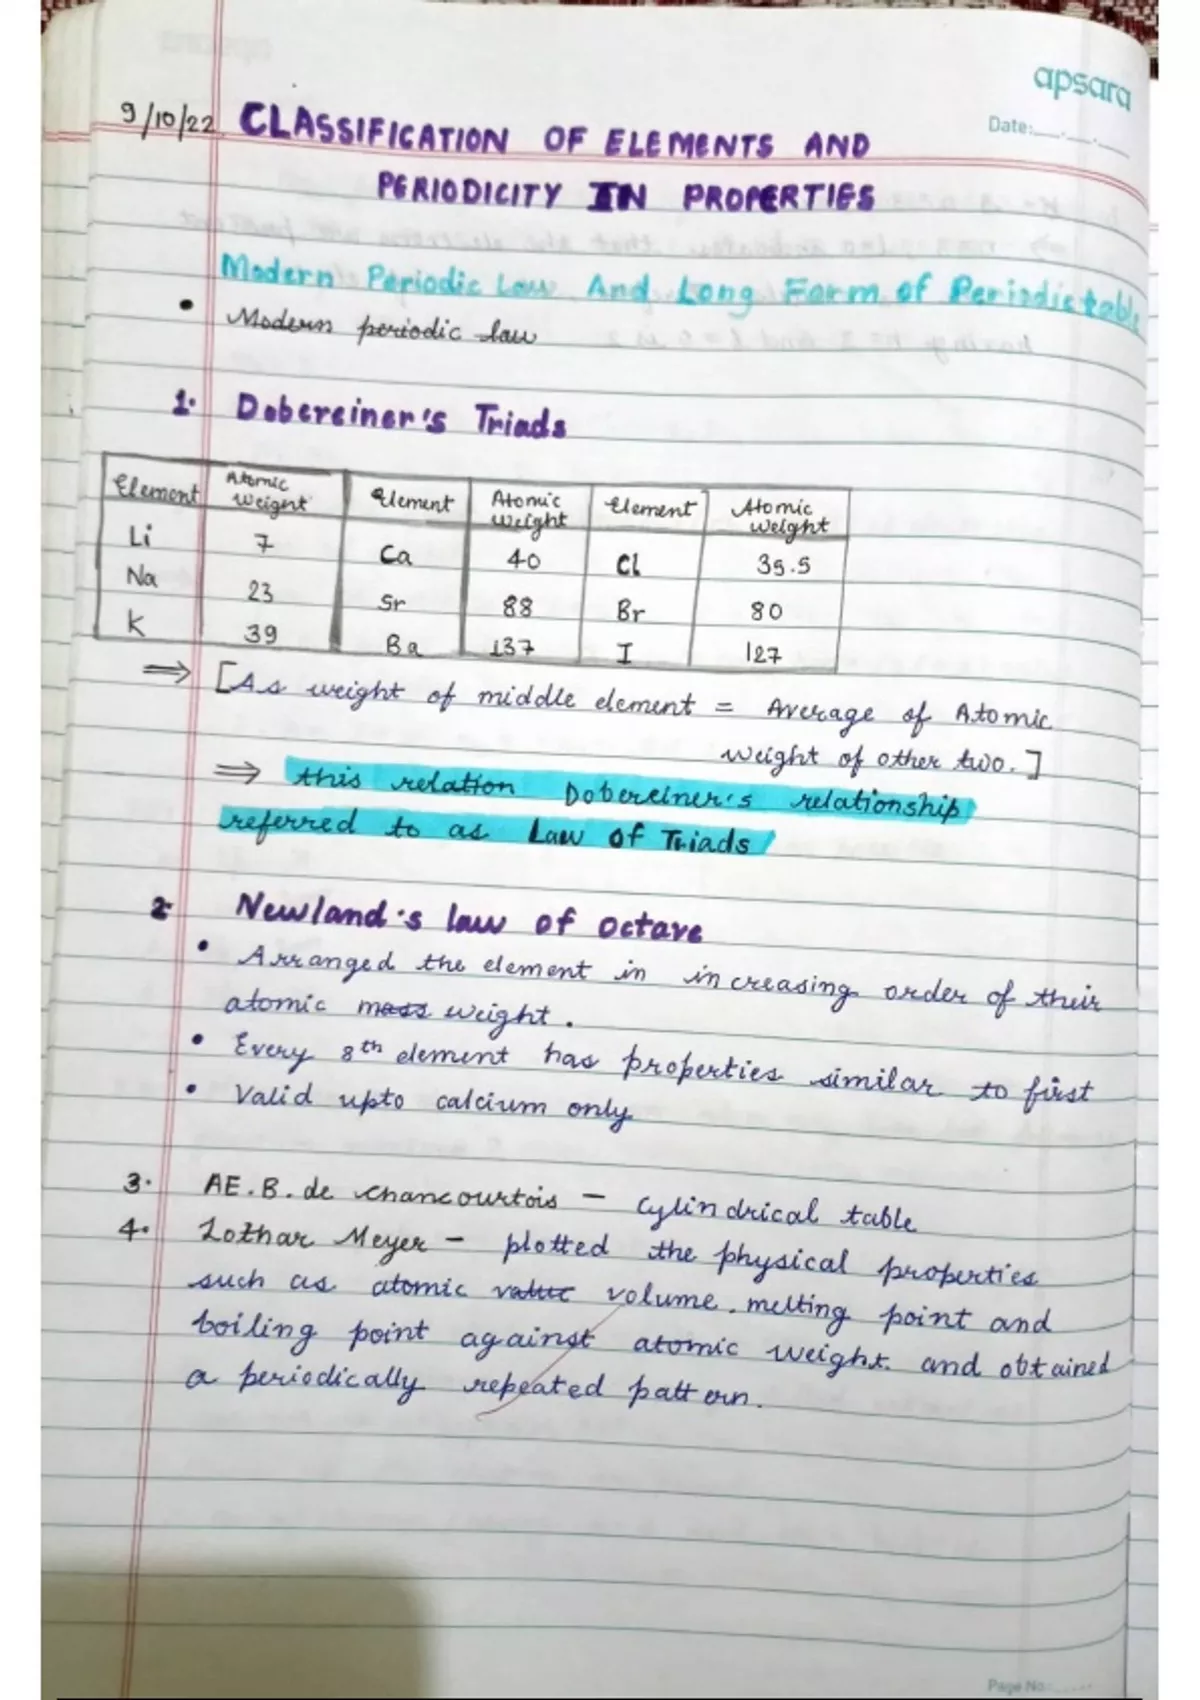 apsara
Date:
9/10/22 CLASSIFICATION OF ELEMENTS AND
PERIODICITY IN PROPERTIES
Modern Periodic Law And Long Form of Periodic table
• Modern periodic law
1. Dobereiner's Triads
Element Atomic weight Element Atomic weight Element Atomic weight
Li 7 Ca 40 Cl 35.5
Na 23 Sr 88 Br 80
K 39 Ba 137 I 127
⇒ [As weight of middle element = Average of Atomic
weight of other two.]
⇒ this relation Dobereiner's relationship
referred to as Law of Triads
2. Newland's law of octave
• Arranged the element in increasing order of their
atomic mass weight.
• Every 8th element has properties similar to first
• Valid upto calcium only
3. AE.B. de chancourtois – Cylindrical table
4. Lothar Meyer – plotted the physical properties
such as atomic value volume, melting point and
boiling point against atomic weight. and obtained
a periodically repeated pattern.
Page No.: